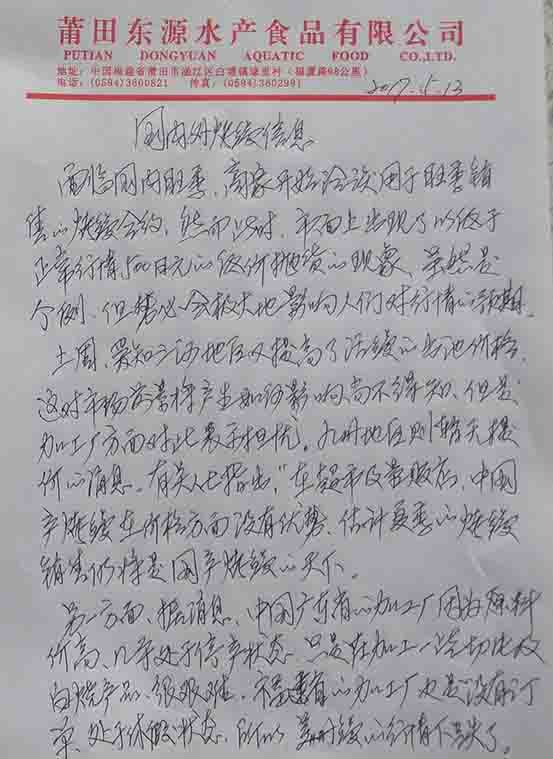 莆田东源水产食品有限公司
PUTIAN DONGYUAN AQUATIC FOOD CO.,LTD.
地址：中国福建省莆田市涵江区白塘镇埭里村（福厦路98公里）
电话：(0594)3600621 传真：(0594)3602991
2017.5.13
国内外烤鳗信息
面临国内旺季，商家开始洽谈用于旺季销
售的烤鳗合约，然而此时，市面上出现了以低于
正常行情500日元的低价抛货的现象，虽然是
个例，但势必会极大地影响人们对行情的预期。
上周，爱知三河地区又提高了活鳗的出池价格，
这对市场前景将产生如何影响尚不得知，但是
加工厂方面对此表示担忧。九州地区则暂无提
价的消息。有关人士指出，“在超市及量贩店，中国
产烤鳗在价格方面没有优势，估计夏季的烤鳗
销售仍将是国产烤鳗的天下。
另一方面，据消息，中国广东省的加工厂因为原料
价高，几乎处于停产状态，只是在加工一些切片及
白烧产品，很艰难。福建省的加工厂也是没有订
单，处于休假状态，所以美洲鳗的行情下跌了。